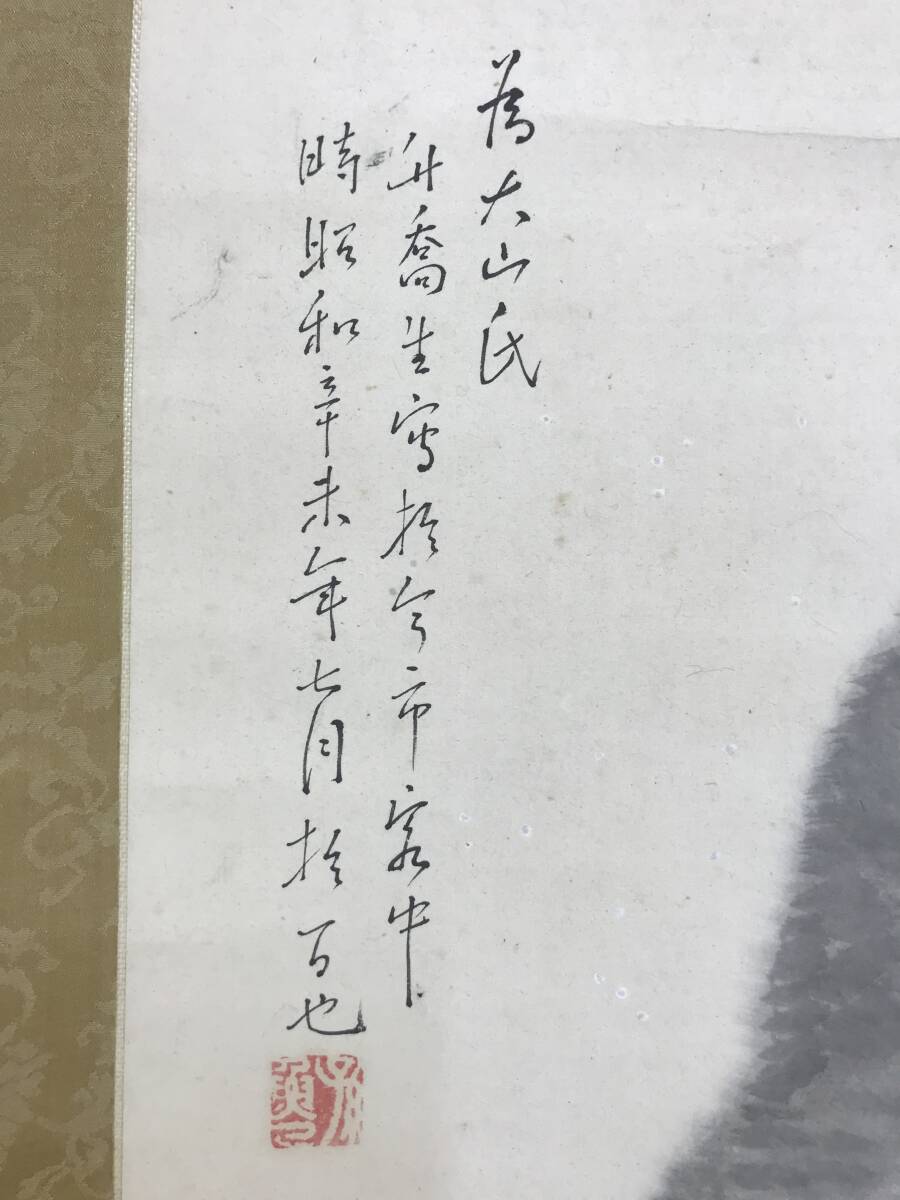 為大山氏
舟喬生寫於今市客中
時昭和辛未年七月於一日也